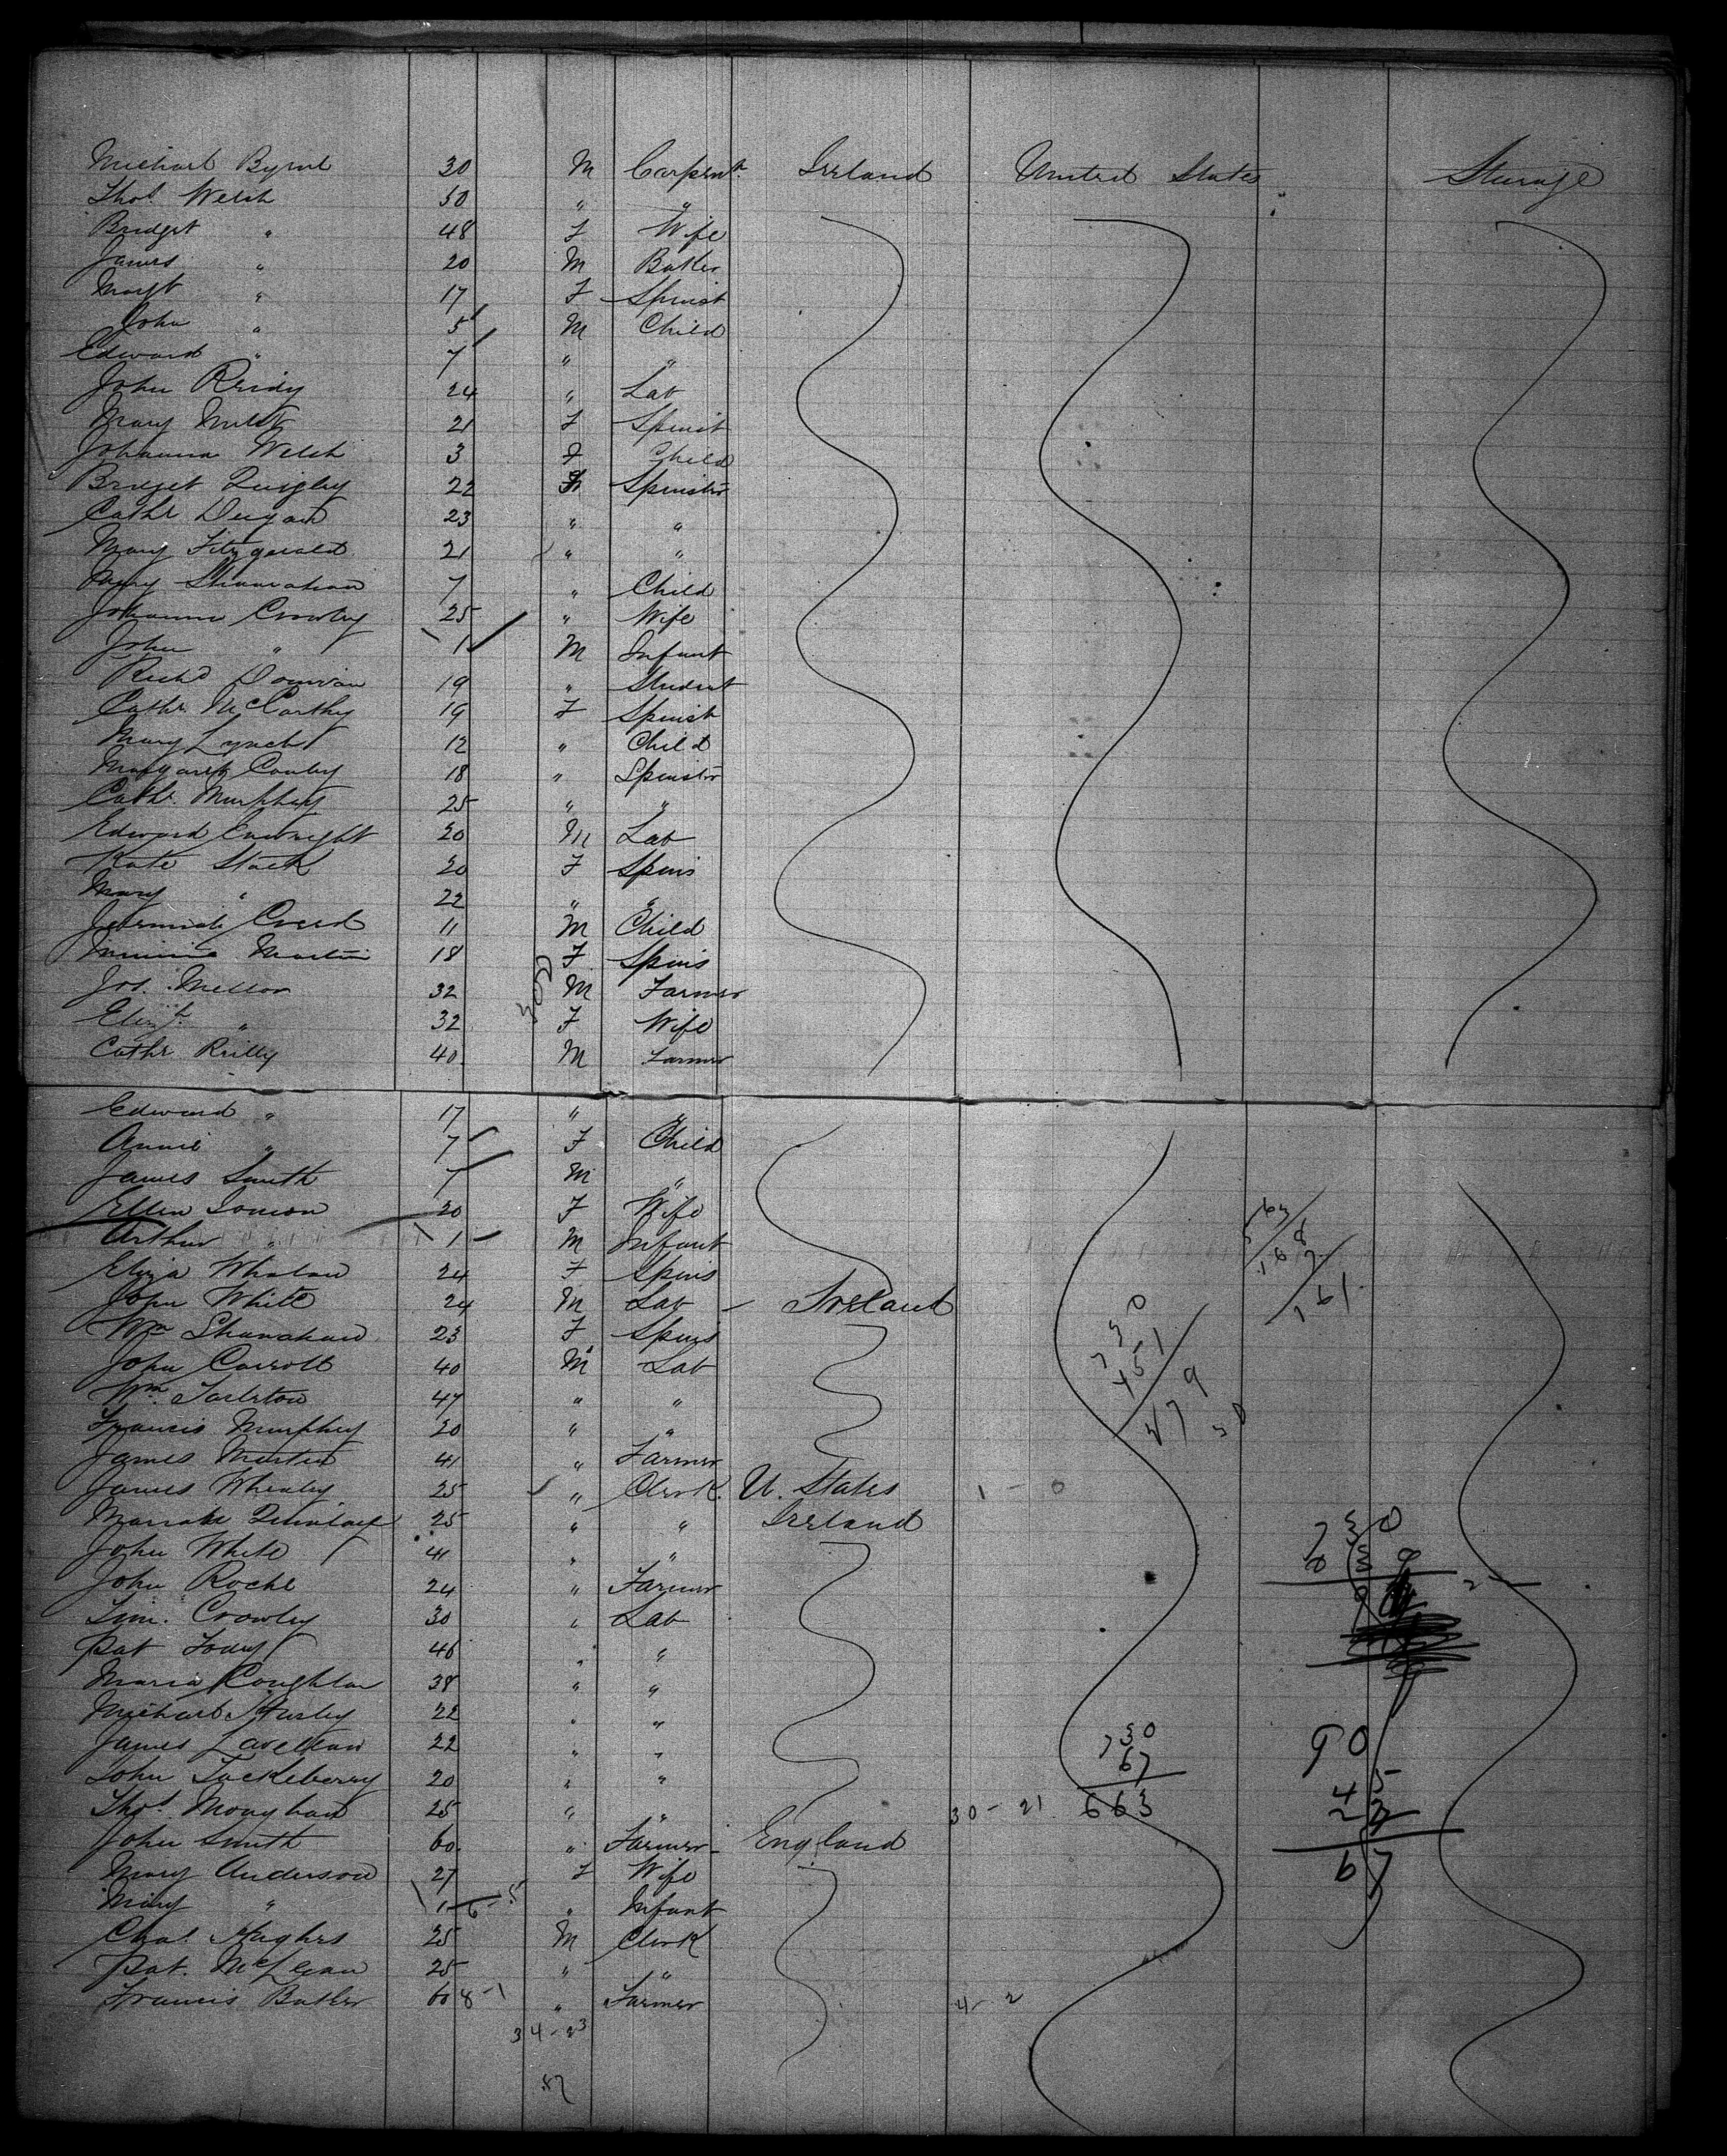 Michael Byrne 30 M Carpentr Ireland United States Steerage
Thos Welsh 50 " "
Bridget " 48 F Wife
James " 20 M Butler
Margt " 17 F Spinst
John " 5 M Child
Edward " 7 " "
John Reidy 24 " Lab
Mary 21 F Spinst
Johanna Welsh 3 F Child
Bridget Quigley 22 F Spinstr
Cathe Dugan 23 " "
Mary Fitzgerald 21 " "
Mary Shanahan 7 " Child
Johanna Crowley 25 " Wife
John " 1 M Infant
Richd Donivan 19 " Student
Cathe McCarthy 19 F Spinst
Mary Lynch 12 " Child
Margaret Conley 18 " Spinstr
Cathe Murphey 25 " "
Edward Enwright 20 M Lab
Kate Stack 20 F Spins
Mary " 22 " "
Jeremiah Creed 11 M Child
Minnie Martin 18 F Spins
Jos. Mellor 32 M Farmer
Elizt " 32 F Wife
Cathe Reilly 40 M Farmer
Edward " 17 " "
Annie " 7 F Child
James Smith 7 M "
Ellen 20 F Wife
Arthur " 1 M Infant
Eliza Whelan 24 F Spins
John White 24 M Lab - Ireland
Wm Shanahan 23 F Spins
John Carroll 40 M Lab
Wm Tarleton 47 " "
Francis Murphey 20 " "
James Martin 41 " Farmer
James Whealey 25 " Clerk U. States 1 - 0
25 " " Ireland
John White 41 " "
John Roche 24 " Farmer
Tim. Crowley 30 " Lab
Pat 46 " "
Maria Coughlan 38 " "
Michael Hurley 22 " "
James 22 " " 730
John Tackleberry 20 " " 67
Thos Monaghan 25 " " 30 - 21 663
John Smith 60 " Farmer - England
Mary Anderson 27 F Wife 67
Mary " 1 6 - 5 " Infant
Chas. Hughes 25 M Clerk
Pat. McLean 25 " "
Francis Butler 60 8 - 1 " Farmer 4 - 2
34 - 23